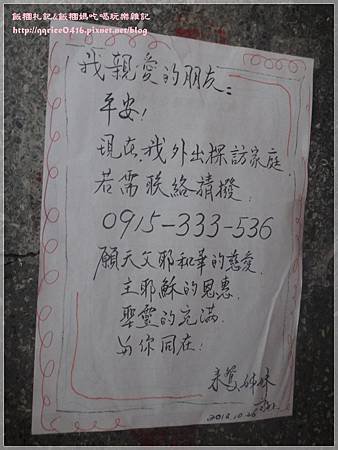 飯糰札記&飯糰媽吃喝玩樂雜記
http://qqrice0416.pixnet.net/blog
我親愛的朋友：
平安!
現在我外出探訪家庭.
若需联絡請撥.
0915-333-536
願天父耶和華的慈愛.
主耶穌的恩惠.
聖靈的充滿.
与你同在：
姊妹